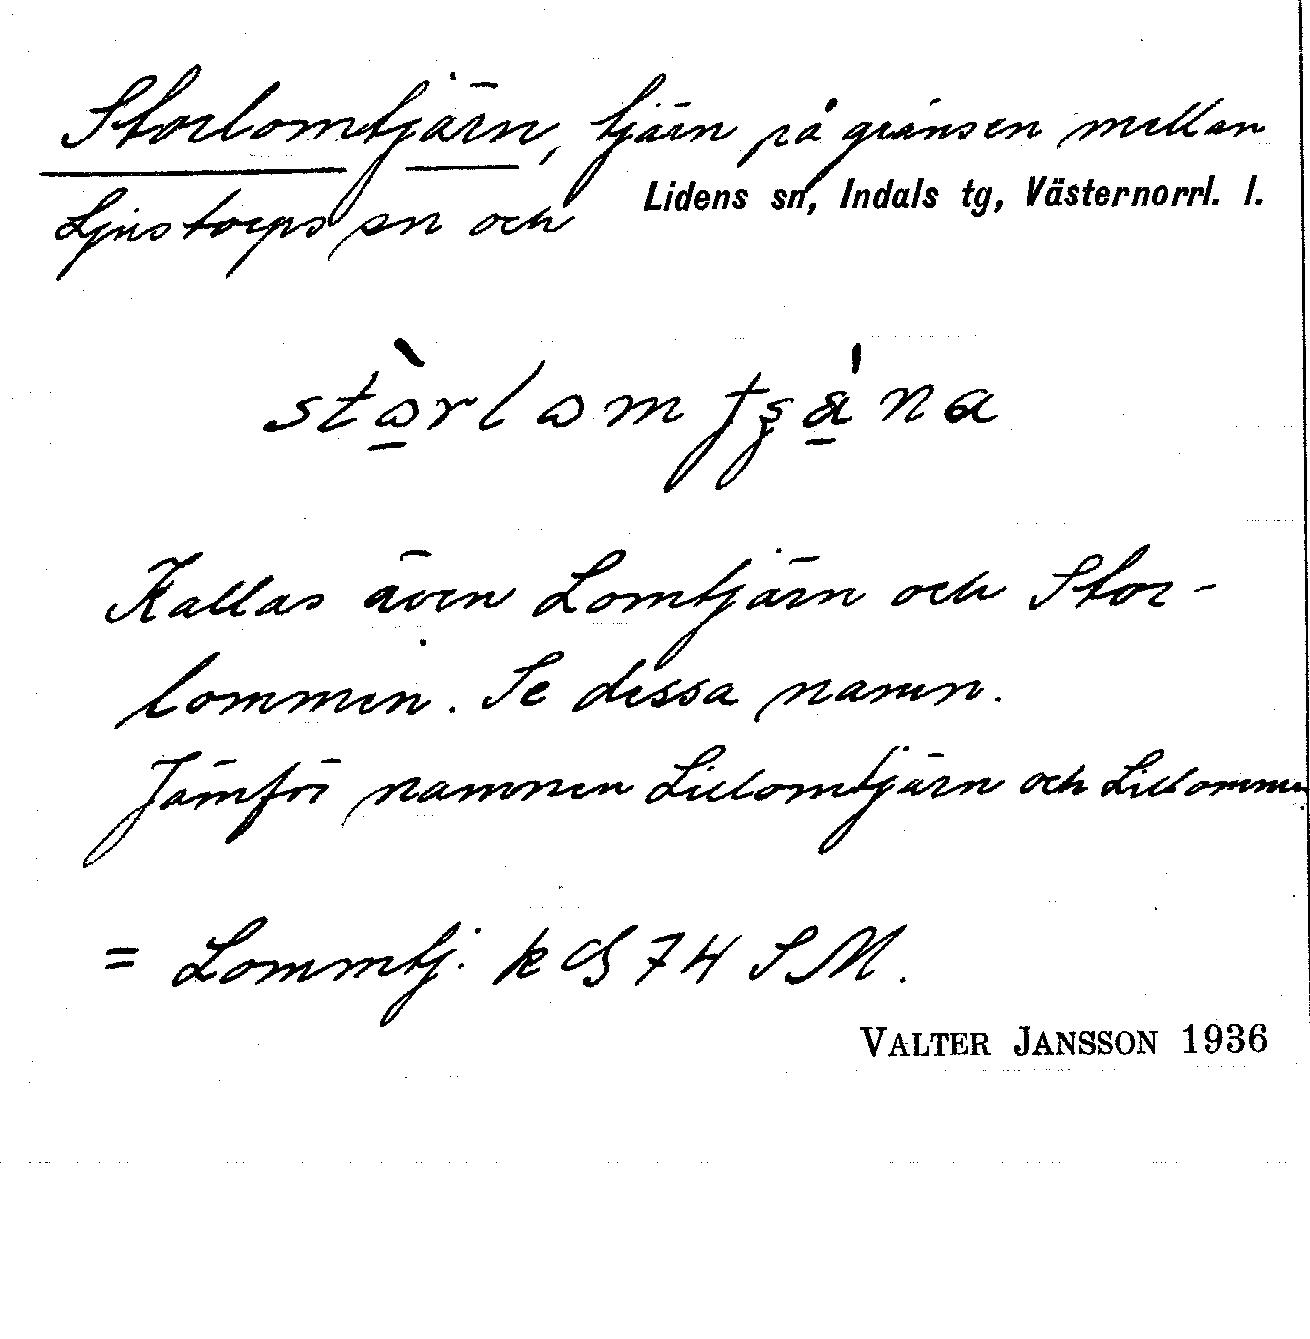 Storlomtjärn, tjärn på gränsen mellan
Ljustorps sn och Lidens sn, Indals tg, Västernorrl. l.
Kallas även Lomtjärn och Stor-
lommen. Se dessa namn.
Jämför namnen Lillomtjärn och Lillommen
= Lommtj. k
74 SM.
VALTER JANSSON 1936